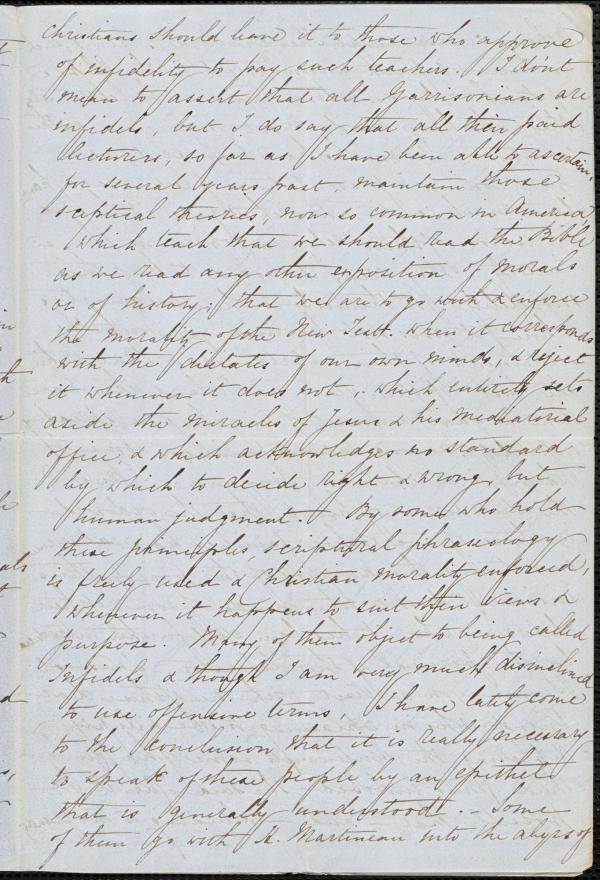 Christians should leave it to those who approve
of infidelity to pay such teachers. I don't
mean to assert that all Garrisonians are
infidels, but I do say that all their paid
lecturers, so far as I have been able to ascertain,
for several years past, maintain those
sceptical theories, now so common in America,
which teach that we should read the Bible
as we read any other exposition of morals
or of history; that we are to go with & enforce
the morality of the New Testt. when it corresponds
with the dictates of our own minds, & reject
it whenever it does not, which entirely sets
aside the miracles of Jesus & his mediatorial
office, & which acknowledges no standard
by which to decide right & wrong, but
human judgment. By some who hold
these principles, scriptural phraseology
is freely used & Christian morality enforced,
whenever it happens to suit their views &
purpose. Many of them object to being called
Infidels & though I am very much disinclined
to use offensive terms, I have lately come
to the conclusion that it is really necessary
to speak of these people by an epithet
that is generally understood. – Some
of them go with H. Martineau into the abyss of